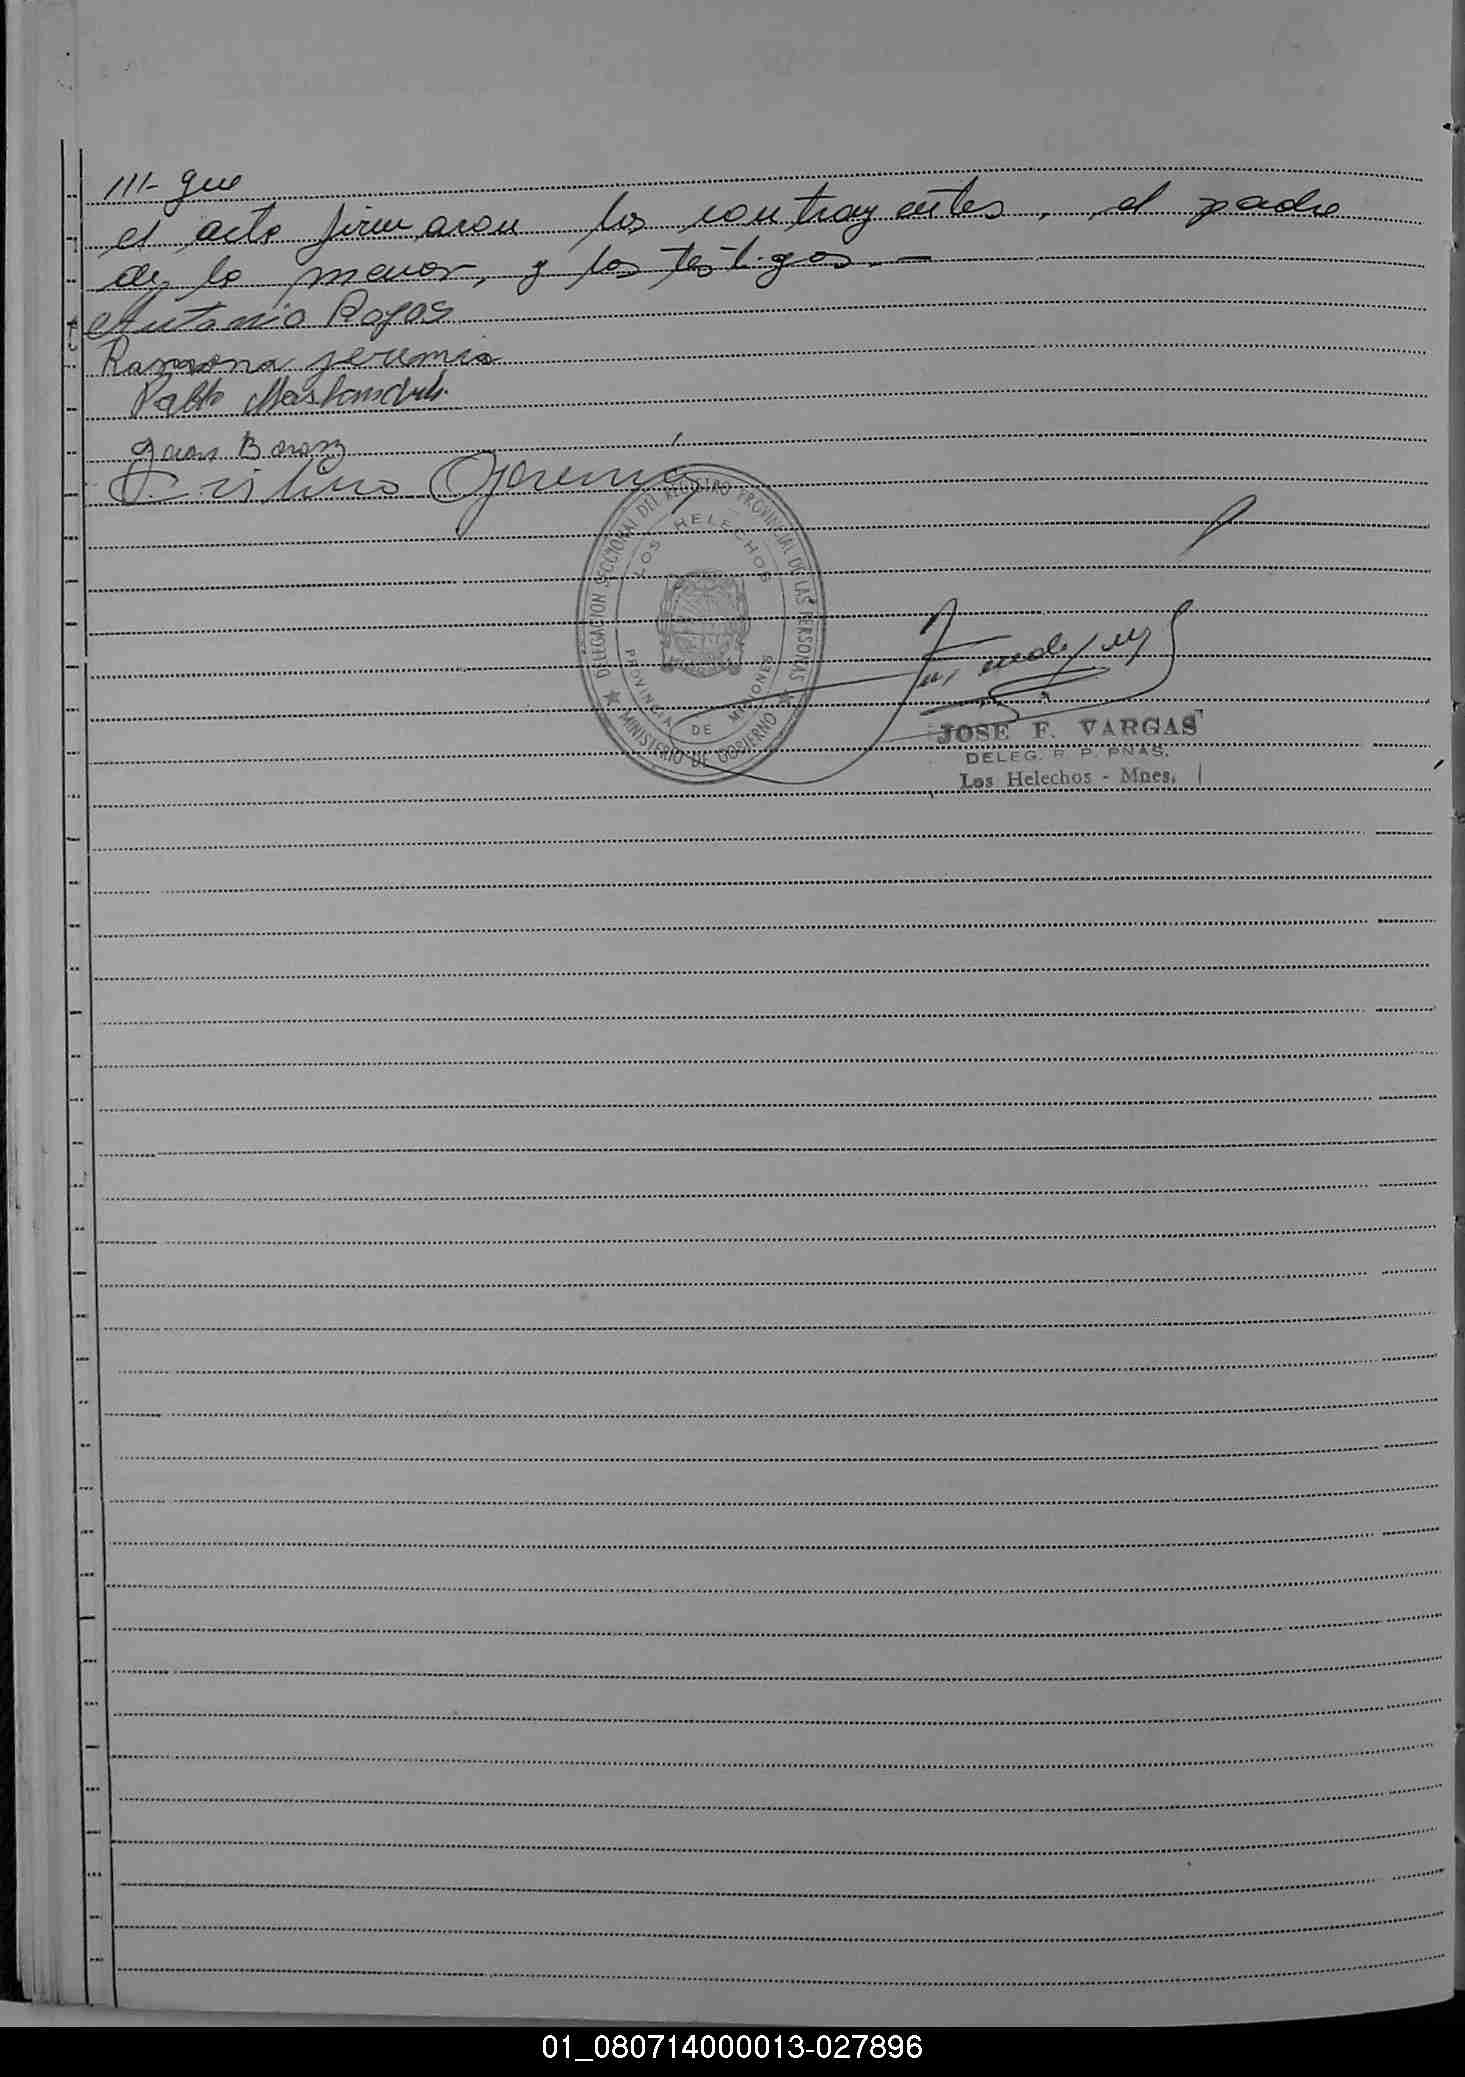 ///- que
el acto firmaron los contrayentes, el padre
de la menor, y los testigos.-
Antonio Rojas
Ramona jeremia
Pablo
Juan
Cristino Jeremia
DELEGACION SECCIONAL DEL REGISTRO PROVINCIAL DE LAS PERSONAS
LOS HELECHOS
PROVINCIA DE MISIONES
★ MINISTERIO DE GOBIERNO ★
JOSE F. VARGAS
DELEG. R. P. PNAS.
Los Helechos - Mnes.
01_080714000013-027896